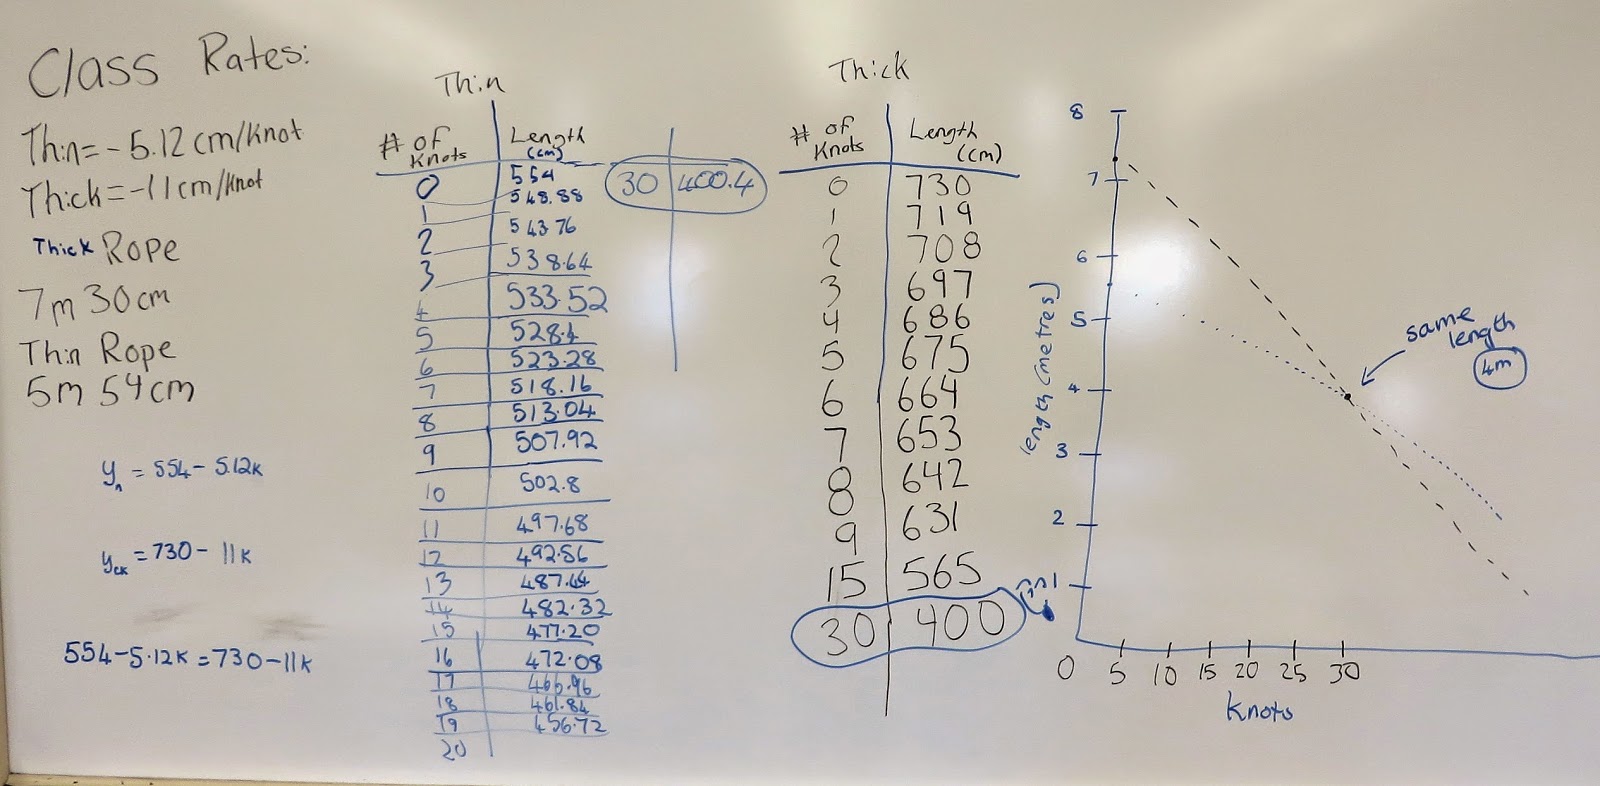 Class Rates:
Thin = -5.12 cm/knot
Thick = -11 cm/knot
Thick Rope
7m 30cm
Thin Rope
5m 54cm
yn = 554 - 5.12k
yck = 730 - 11k
554 - 5.12k = 730 - 11k
Thin
# of Knots Length (cm)
0 554
1 548.88
2 543.76
3 538.64
4 533.52
5 528.4
6 523.28
7 518.16
8 513.04
9 507.92
10 502.8
11 497.68
12 492.56
13 487.44
14 482.32
15 477.20
16 472.08
17 466.96
18 461.84
19 456.72
20
30 400.4
Thick
# of Knots Length (cm)
0 730
1 719
2 708
3 697
4 686
5 675
6 664
7 653
8 642
9 631
15 565
30 400
length (metres)
8
7
6
5
4
3
2
1
same length
4m
0 5 10 15 20 25 30
Knots